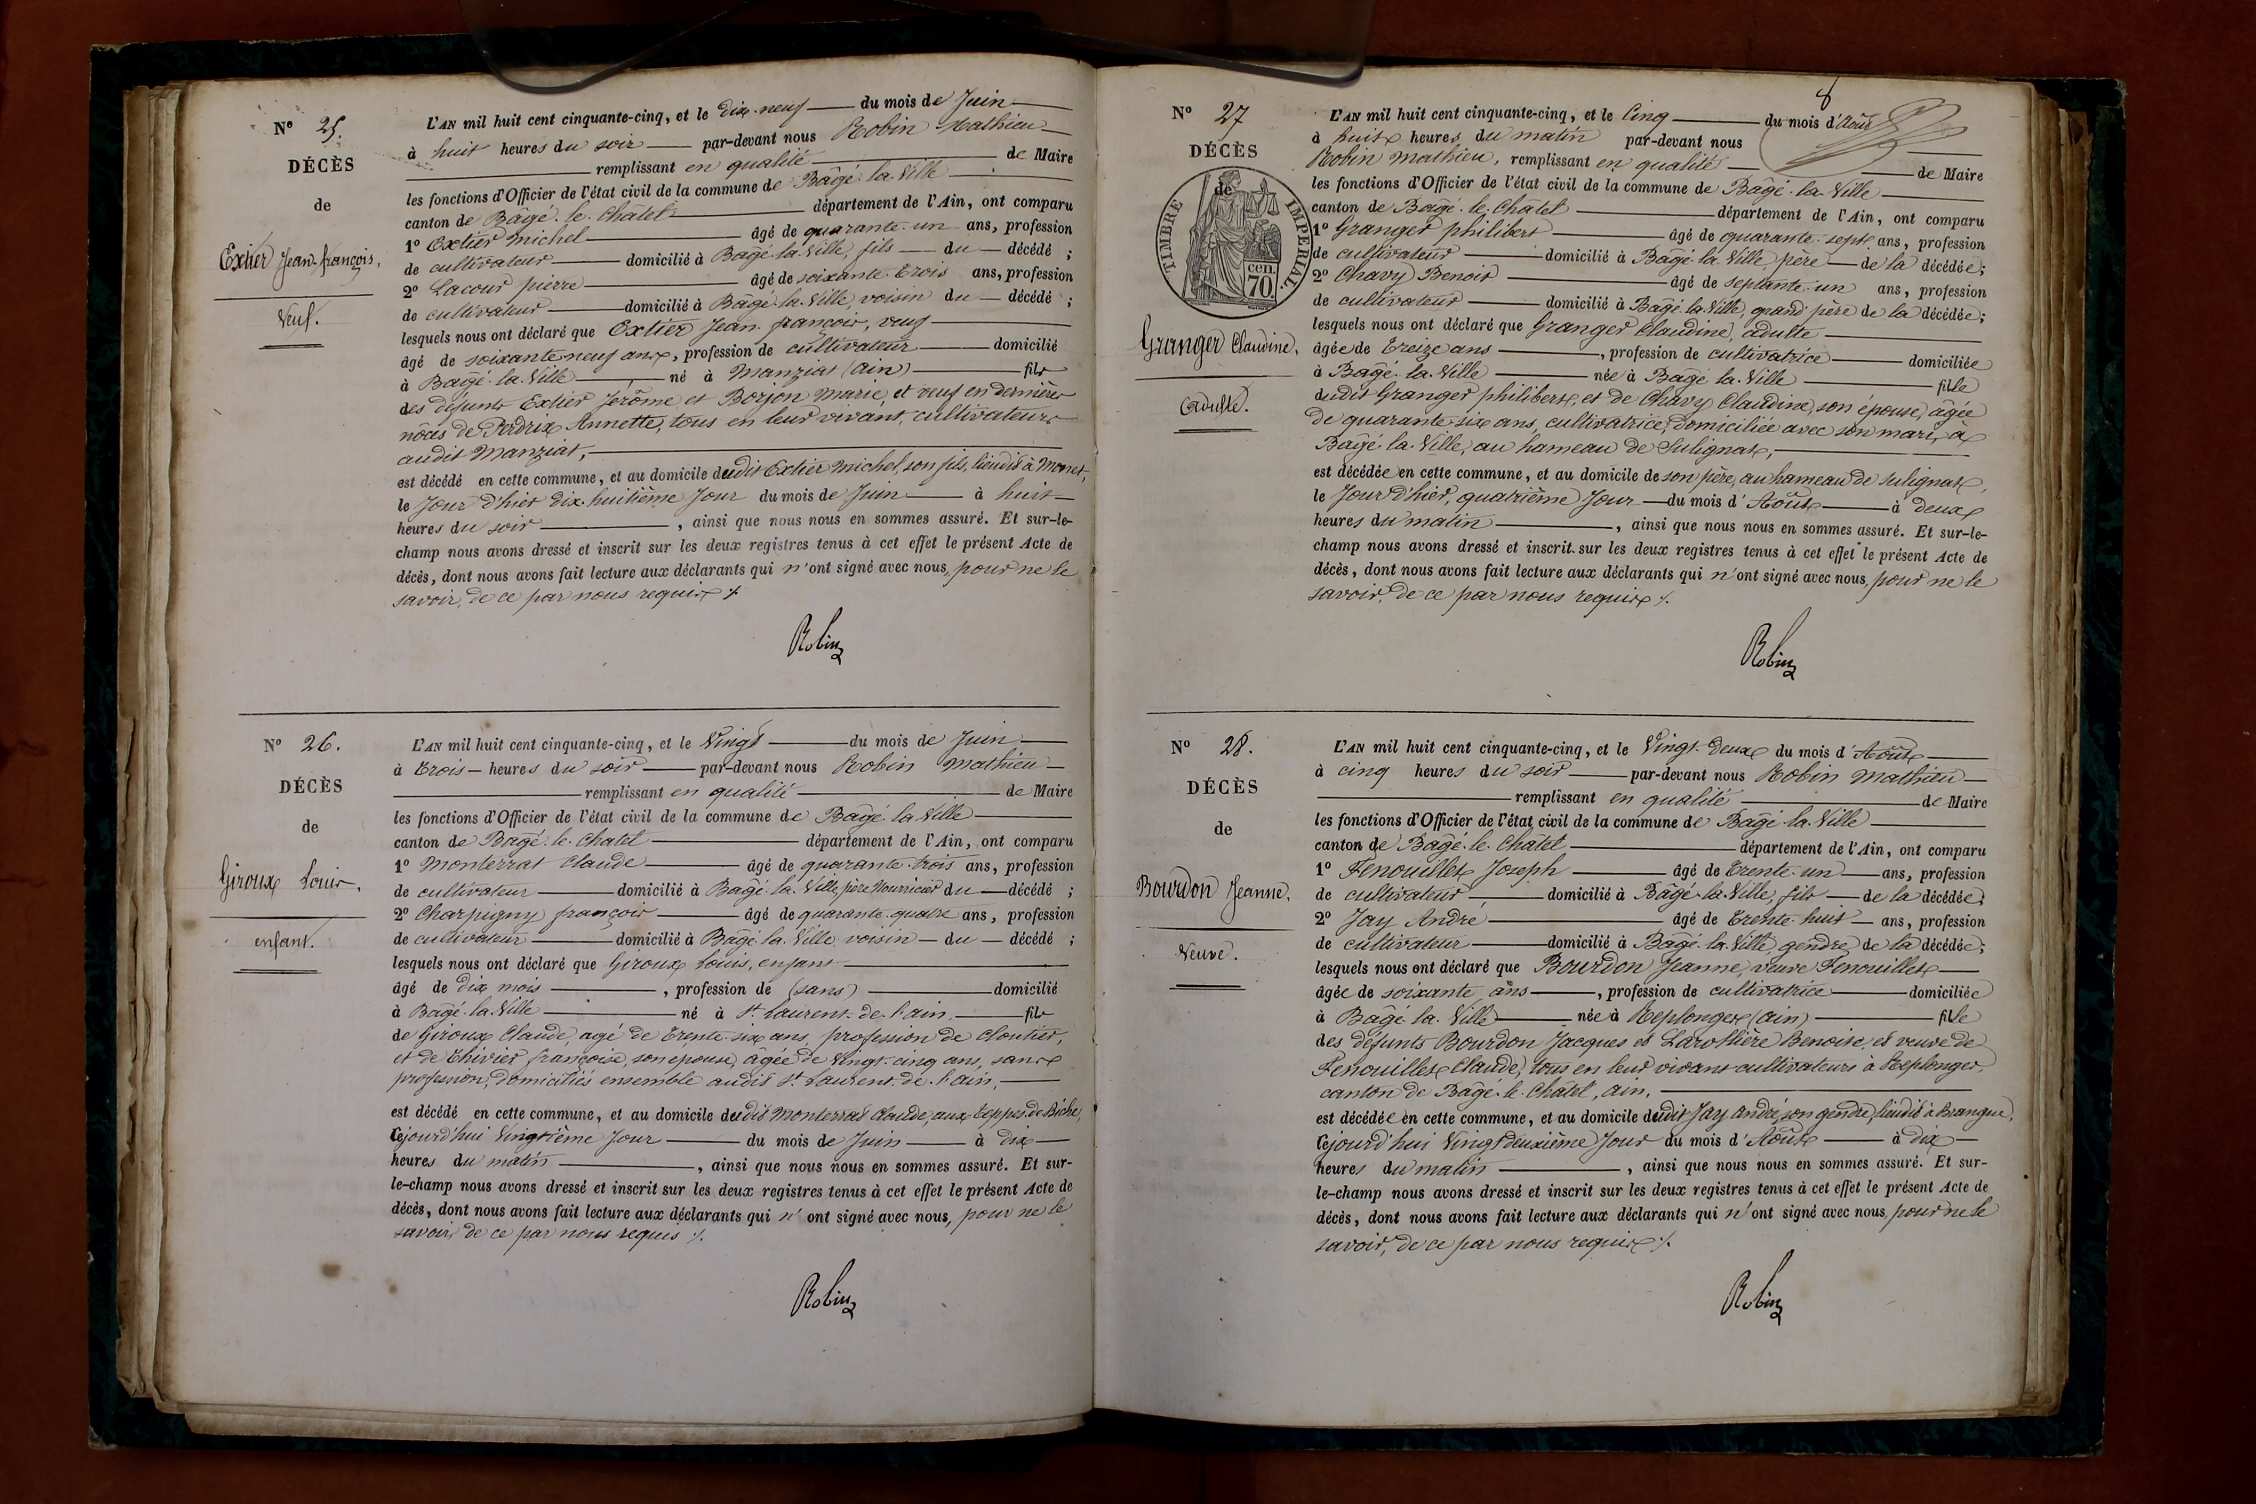 N° 25.
DÉCÈS
de
Extier Jean-françois,
Veuf.
L'AN mil huit cent cinquante-cinq, et le dix-neuf du mois de Juin
à huit heures du soir par-devant nous Robin Mathieu
remplissant en qualité de Maire
les fonctions d'Officier de l'état civil de la commune de Bâgé-la-Ville
canton de Bâgé-le-Châtel département de l'Ain, ont comparu
1° Extier Michel âgé de quarante-un ans, profession
de cultivateur domicilié à Bâgé-la-Ville, fils du décédé ;
2° Lacour pierre âgé de soixante-trois ans, profession
de cultivateur domicilié à Bâgé-la-Ville voisin du décédé ;
lesquels nous ont déclaré que Extier Jean-françois, veuf
âgé de soixante neuf ans, profession de cultivateur domicilié
à Bagé-la-Ville né à Manziat (ain) fils
des défunts Extier Jérôme et Borjon Marie, et veuf en dernières
nôces de Perdrix Annette, tous en leur vivant, cultivateurs
audit Manziat,
est décédé en cette commune, et au domicile dudit Extier Michel, son fils, lieudit à Monet,
le Jour d'hier dix-huitième Jour du mois de Juin à huit
heures du soir, ainsi que nous nous en sommes assuré. Et sur-le-
champ nous avons dressé et inscrit sur les deux registres tenus à cet effet le présent Acte de
décès, dont nous avons fait lecture aux déclarants qui n'ont signé avec nous, pour ne le
savoir, de ce par nous requis ./.
Robin
N° 26.
DÉCÈS
de
Giroux Louis,
enfant.
L'AN mil huit cent cinquante-cinq, et le Vingt du mois de Juin
à trois heures du soir par-devant nous Robin Mathieu
remplissant en qualité de Maire
les fonctions d'Officier de l'état civil de la commune de Bagé-la-Ville
canton de Bagé-le-Chatel département de l'Ain, ont comparu
1° Monterrat Claude âgé de quarante-trois ans, profession
de cultivateur domicilié à Bagé-la-Ville, père Nourricier du décédé ;
2° Charpigny françois âgé de quarante-quatre ans, profession
de cultivateur domicilié à Bâgé-la-Ville voisin du décédé ;
lesquels nous ont déclaré que Giroux Louis, enfant
âgé de dix mois, profession de (sans) domicilié
à Bagé-la-Ville né à St Laurent-de-l'ain, fils
de Giroux Claude, agé de trente-six ans, profession de Cloutier,
et de Thivier françoise, son épouse, âgée de vingt-cinq ans, sans
profession, domiciliés ensemble audit St Laurent-de-l'ain,
est décédé en cette commune, et au domicile dudit Monterrat Claude, aux teppes de Biche,
cejourd'hui Vingtième Jour du mois de Juin à dix
heures du matin, ainsi que nous nous en sommes assuré. Et sur-
le-champ nous avons dressé et inscrit sur les deux registres tenus à cet effet le présent Acte de
décès, dont nous avons fait lecture aux déclarants qui n'ont signé avec nous, pour ne le
savoir, de ce par nous requis ./.
Robin
8
N° 27
DÉCÈS
de
TIMBRE IMPERIAL.
cen. 70.
Granger Claudine,
adulte.
L'AN mil huit cent cinquante-cinq, et le Cinq du mois d'Août
à huit heures du matin par-devant nous
Robin Mathieu, remplissant en qualité de Maire
les fonctions d'Officier de l'état civil de la commune de Bâgé-la-Ville
canton de Bagé-le-Châtel département de l'Ain, ont comparu
1° Granger philibert âgé de quarante-sept ans, profession
de cultivateur domicilié à Bâgé-la-Ville père de la décédée ;
2° Chavy Benoit âgé de septante-un ans, profession
de cultivateur domicilié à Bâgé-la-Ville, grand'père de la décédée ;
lesquels nous ont déclaré que Granger Claudine, adulte
âgée de treize ans, profession de cultivatrice domiciliée
à Bagé-la-Ville née à Bagé-la-Ville fille
dudit Granger philibert, et de Chavy Claudine, son épouse, âgée
de quarante-six ans, cultivatrice, domiciliée avec son mari, à
Bâgé-la-Ville, au hameau de Sulignat,
est décédée en cette commune, et au domicile de son père, au hameau de sulignat,
le Jour d'hier, quatrième Jour du mois d'Août à deux
heures du matin, ainsi que nous nous en sommes assuré. Et sur-le-
champ nous avons dressé et inscrit sur les deux registres tenus à cet effet le présent Acte de
décès, dont nous avons fait lecture aux déclarants qui n'ont signé avec nous, pour ne le
savoir, de ce par nous requis ./.
Robin
N° 28.
DÉCÈS
de
Bourdon Jeanne,
Veuve.
L'AN mil huit cent cinquante-cinq, et le Vingt-deux du mois d'Août
à cinq heures du soir par-devant nous Robin Mathieu
remplissant en qualité de Maire
les fonctions d'Officier de l'état civil de la commune de Bagé-la-Ville
canton de Bagé-le-Châtel département de l'Ain, ont comparu
1° Fenouillet Joseph âgé de trente-un ans, profession
de cultivateur domicilié à Bâgé-la-Ville, fils de la décédée ;
2° Jay André âgé de trente-huit ans, profession
de cultivateur domicilié à Bâgé-la-Ville gendre de la décédée ;
lesquels nous ont déclaré que Bourdon Jeanne, veuve Fenouillet
âgée de soixante ans, profession de cultivatrice domiciliée
à Bagé-la-Ville née à Replonges (ain) fille
des défunts Bourdon Jacques et Larollière Benoite, et veuve de
Fenouillet Claude, tous en leur vivant cultivateurs à Replonges,
canton de Bâgé-le-Châtel, ain,
est décédée en cette commune, et au domicile dudit Jay André, son gendre, lieudit à Brangue,
cejourd'hui Vingt-deuxième Jour du mois d'Août à dix
heures du matin, ainsi que nous nous en sommes assuré. Et sur-
le-champ nous avons dressé et inscrit sur les deux registres tenus à cet effet le présent Acte de
décès, dont nous avons fait lecture aux déclarants qui n'ont signé avec nous, pour ne le
savoir, de ce par nous requis ./.
Robin